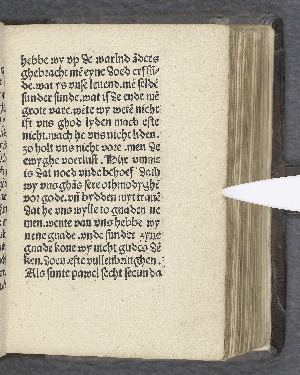 hebbe wy vp de warlnd āders
ghebracht mē eyne doed ersſū-
de. wat ys vnſe leuend. mē ſeldē
ſunder ſunde. wat is de ende mē
grote vare. wete wy wete nicht
iſt vns ghod lyden mach efte
nicht. wach he vns nicht liden.
zo holt vns nicht vore. men de
ewyghe vorluſt. Hir vmme
is dat noed vnde behoef dath
wy vns ghās ſere othmodyghē
vor gode. vn̄ bydden myt tranē
dat he vns wylle to gnaden ne
men. wente van vns hebbe wy
nene gnade. vnde ſunder zyne
gnade kone wy nicht gudes dē
ken. doen. efte vullenbringhen.
Als ſunte pawel ſecht ſecunda